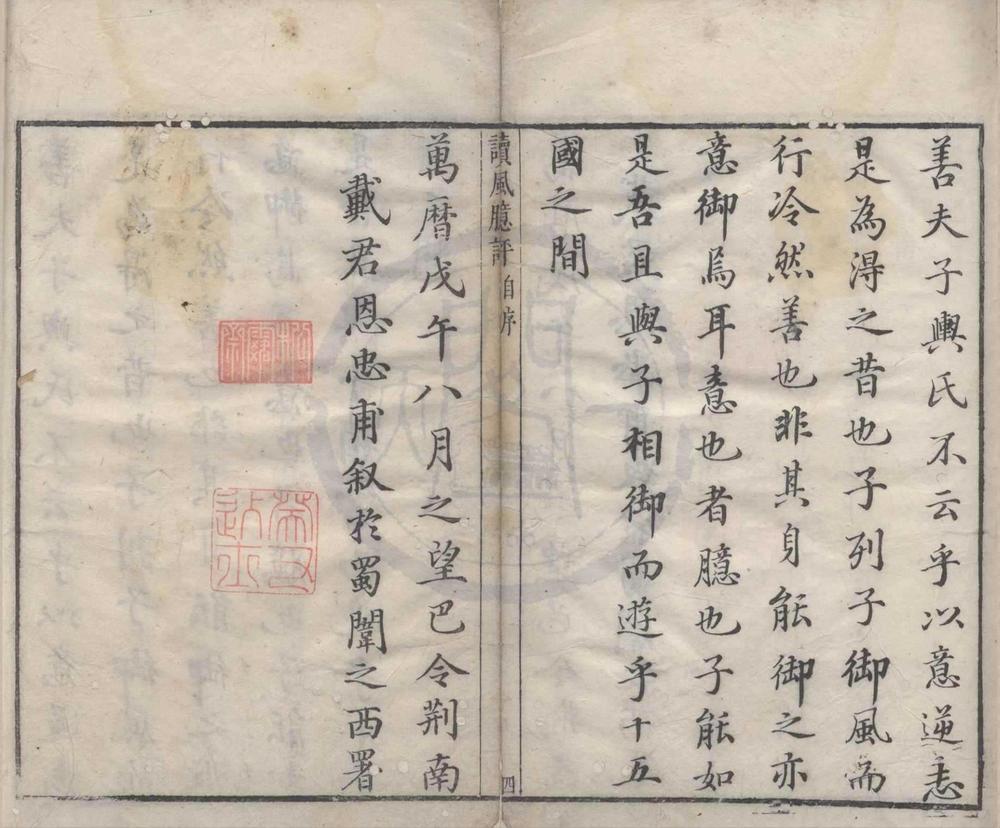 善夫子輿氏不云乎以意逆志
是為得之昔也子列子御風而
行冷然善也非其身能御之亦
意御焉耳意也者臆也子能如
是吾且與子相御而遊乎十五
國之間
讀風臆評 自序 四
萬曆戊午八月之望巴令荆南
戴君恩忠甫叙於蜀闈之西署